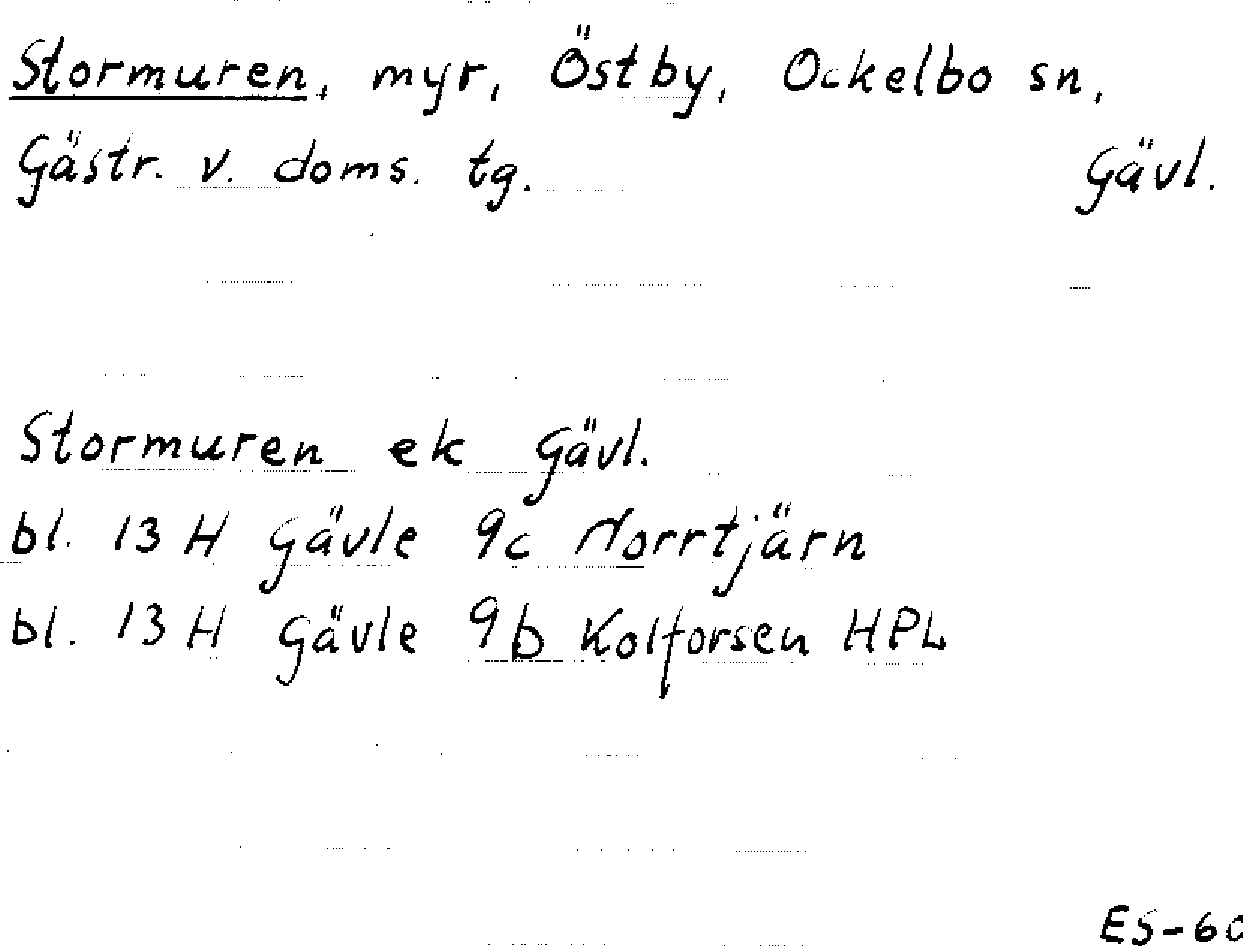 Stormuren, myr, Östby, Ockelbo sn,
Gästr. v. doms. tg. Gävl.
Stormuren ek Gävl.
bl. 13 H Gävle 9c Norrtjärn
bl. 13 H Gävle 9b Kolforsen HPL
ES-60